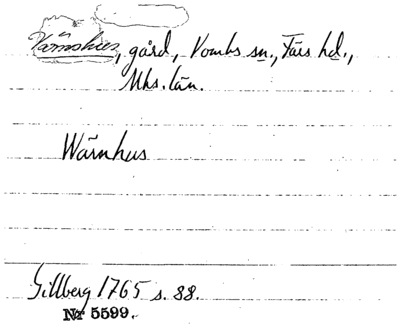 Värnshus, gård, Vombs sn., Färs hd.,
Mhs. län.
Wärnhus
Gillberg 1765 s. 88.
Nr 5599.